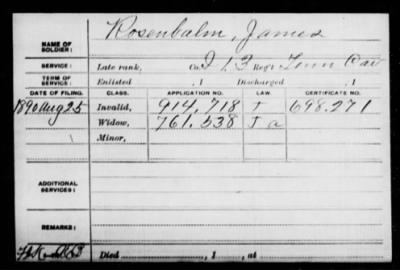 NAME OF SOLDIER: Rosenbalm, James
SERVICE: Late rank, Co. I, 13 Reg't Tenn Cav
TERM OF SERVICE: Enlisted , 1 Discharged , 1
DATE OF FILING. CLASS. APPLICATION NO. LAW. CERTIFICATE NO.
1890 Aug 25 Invalid, 914,718 J 698.271
Widow, 761.538 J a
1 Minor,
ADDITIONAL SERVICES:
REMARKS:
Died , 1 , at